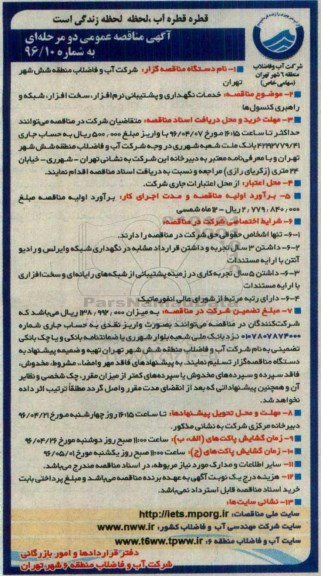 قطره قطره آب ،لحظه لحظه زندگی است
آگهی مناقصه عمومی دو مرحله‌ای
به شماره ۹۶/۱۰
شرکت آب و فاضلاب
منطقه ۶ شهر تهران
(سهامی خاص)
۱- نام دستگاه مناقصه گزار: شرکت آب و فاضلاب منطقه شش شهر
تهران
۲- موضوع مناقصه: خدمات نگهداری و پشتیبانی نرم‌افزار، سخت افزار، شبکه و
راهبری کنسول‌ها
۳- مهلت خرید و محل دریافت اسناد مناقصه: متقاضیان شرکت در مناقصه می‌توانند
حداکثر تا ساعت ۱۶:۱۵ مورخ ۹۶/۰۴/۰۷ با واریز مبلغ ۵۰۰,۰۰۰ ریال به حساب جاری
۴۲۳۲۷۷۹/۴۱ بانک ملت شعبه شهرری در وجه شرکت آب و فاضلاب منطقه شش شهر
تهران و با معرفی‌نامه معتبر به دبیرخانه این شرکت به نشانی تهران - شهرری - خیابان
۲۴ متری (زکریای رازی) مراجعه و نسبت به دریافت اسناد مناقصه اقدام نمایند.
۴- محل اعتبار: از محل اعتبارات جاری شرکت.
۵- برآورد اولیه مناقصه و مدت اجرای کار: برآورد اولیه مناقصه مبلغ
۲,۷۷۹,۸۴۰,۰۰۰ ریال - ۱۲ ماه شمسی
۶- شرایط اختصاصی شرکت در مناقصه:
۶-۱- تنها اشخاص حقوقی حق شرکت در مناقصه را دارند.
۶-۲- داشتن ۳ سال تجربه و داشتن قرارداد مشابه در نگهداری شبکه وایرلس و رادیو
آنتن با ارایه مستندات
۶-۳- داشتن ۵ سال تجربه کاری در زمینه پشتیبانی از شبکه‌های رایانه‌ای و سخت‌افزاری
با ارایه مستندات
۶-۴- دارای رتبه مرتبط از شورای عالی انفورماتیک
۷- مبلغ تضمین شرکت در مناقصه: به میزان ۱۳۸,۹۹۲,۰۰۰ ریال می‌باشد که
شرکت‌کنندگان در مناقصه می‌توانند بصورت واریز نقدی به حساب جاری شماره
۰۱۰۷۸۰۷۸۷۳۰۰۰ نزد بانک ملی شعبه بلوار شهرری یا ضمانتنامه بانکی و یا چک بانکی
تضمینی به نام شرکت آب و فاضلاب منطقه شش شهر تهران تهیه و ضمیمه پیشنهاد به
دستگاه مناقصه‌گزار تسلیم نمایند. به پیشنهادهای فاقد مهر و امضا، مشروط، مخدوش،
فاقد سپرده و سپرده‌های مخدوش یا سپرده‌های کمتر از میزان مقرر، چک شخصی و نظایر
آن و همچنین پیشنهاداتی که بعد از انقضای مدت مقرر واصل گردد مطلقاً ترتیب اثر داده
نخواهد شد.
۸- مهلت و محل تحویل پیشنهادها: تا ساعت ۱۶:۱۵ روز چهارشنبه مورخ ۹۶/۰۴/۲۱
دبیرخانه مرکزی شرکت به نشانی مذکور.
۹- زمان گشایش پاکت‌های (الف، ب): ساعت ۱۱:۰۰ صبح روز دوشنبه مورخ ۹۶/۰۴/۲۶
۱۰- زمان گشایش پاکت‌های (ج): ساعت ۱۱:۰۰ صبح روز یکشنبه مورخ ۹۶/۰۵/۰۱
۱۱- سایر اطلاعات و مدارک مورد نیاز مربوطه، در اسناد مناقصه مندرج می‌باشد.
۱۲- هزینه درج یک نوبت آگهی به عهده برنده مناقصه می‌باشد و مبلغ پرداختی بابت
خرید اسناد مناقصه قابل استرداد نمی‌باشد.
۱۳- نشانی سایت‌ها:
سایت ملی مناقصات: http://iets.mporg.ir
سایت شرکت مهندسی آب و فاضلاب کشور: www.nww.ir
سایت آب و فاضلاب منطقه ۶: www.t6ww.tpww.ir
دفتر قراردادها و امور بازرگانی
شرکت آب و فاضلاب منطقه ۶ شهر تهران
ParsNamadData